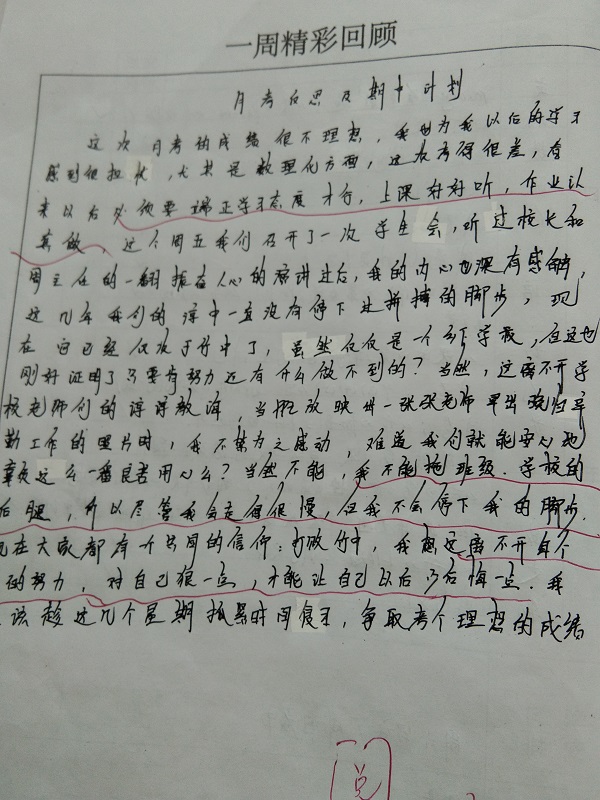 一周精彩回顾
月考反思及期中计划
这次月考的成绩很不理想,我也为我以后的学习
感到很担忧,尤其是数理化方面,这次考得很差,看
来以后必须要端正学习态度才行,上课好好听,作业认
真做。这个周五我们召开了一次学生会,听过校长和
周主任的一翻振奋人心的演讲过后,我的内心也深有感触,
这几年我们的淳中一直没有停下过拼搏的脚步,现
在也已经仅次于竹中了,虽然仅仅是一个乡下学校,但这也
刚好证明了只要有努力还有什么做不到的?当然,这离不开学
校老师们的谆谆教诲,当放映出一张张老师早出晚归辛
勤工作的照片时,我不禁为之感动,难道我们就能安心地
辜负这么一番良苦用心么?当然不能,我不能拖班级、学校的
后腿,所以尽管我会走得很慢,但我不会停下我的脚步.
现在大家都有一个共同的信仰:打败竹中,我想这离不开每个
的努力,对自己狠一点,才能让自己以后少后悔一点.我
该趁这几个星期抓紧时间复习,争取考个理想的成绩
阅